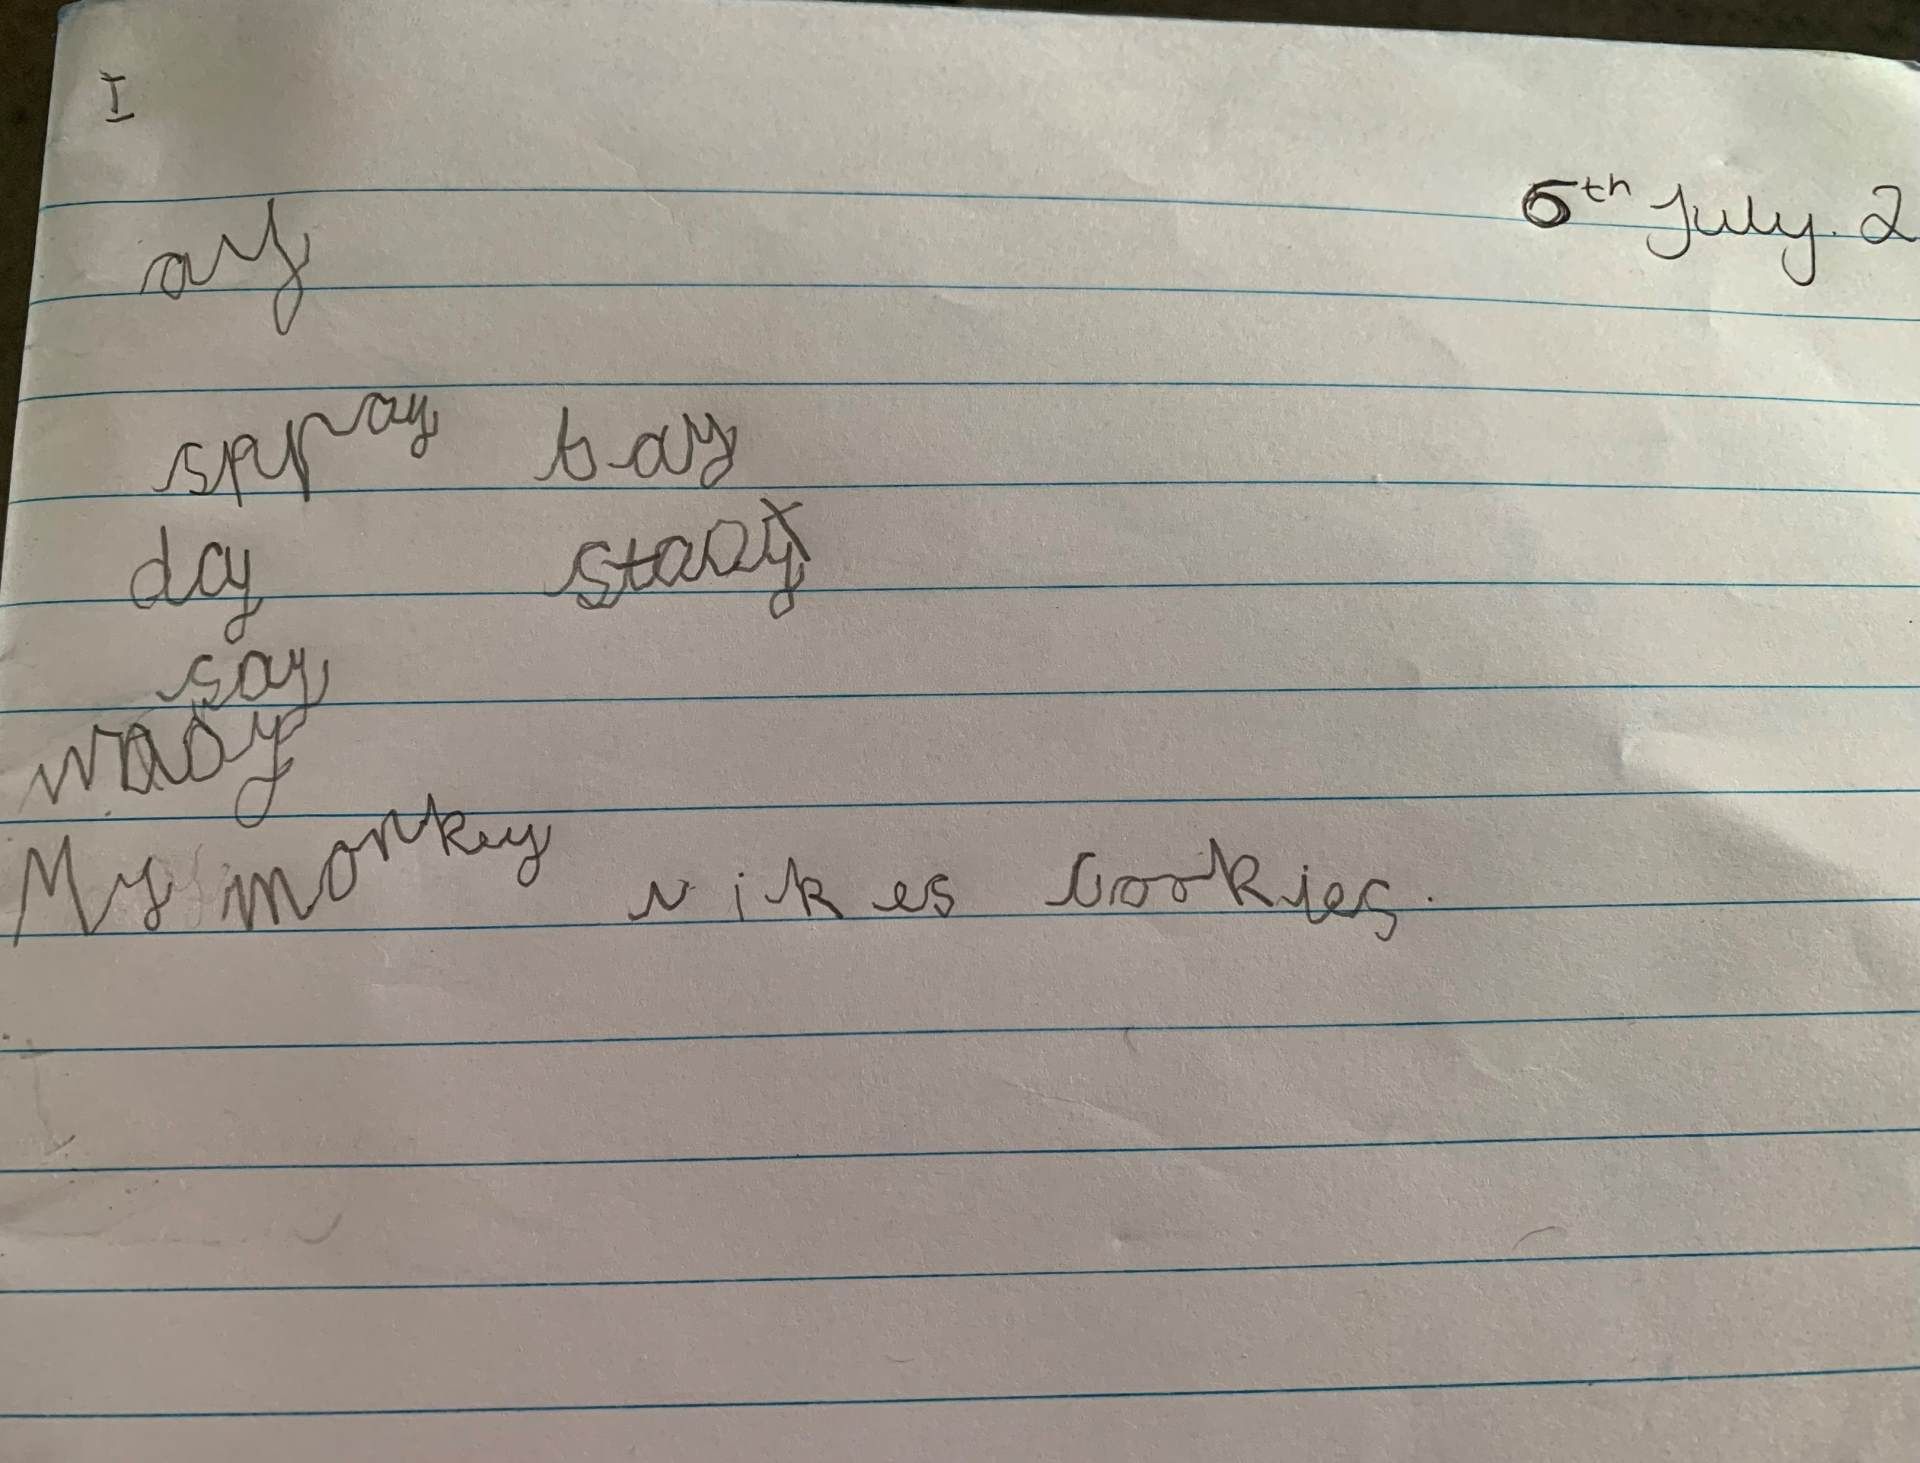 I
6th July. 2
ay
spray bay
day stay
say
way
My monkey likes cookies.